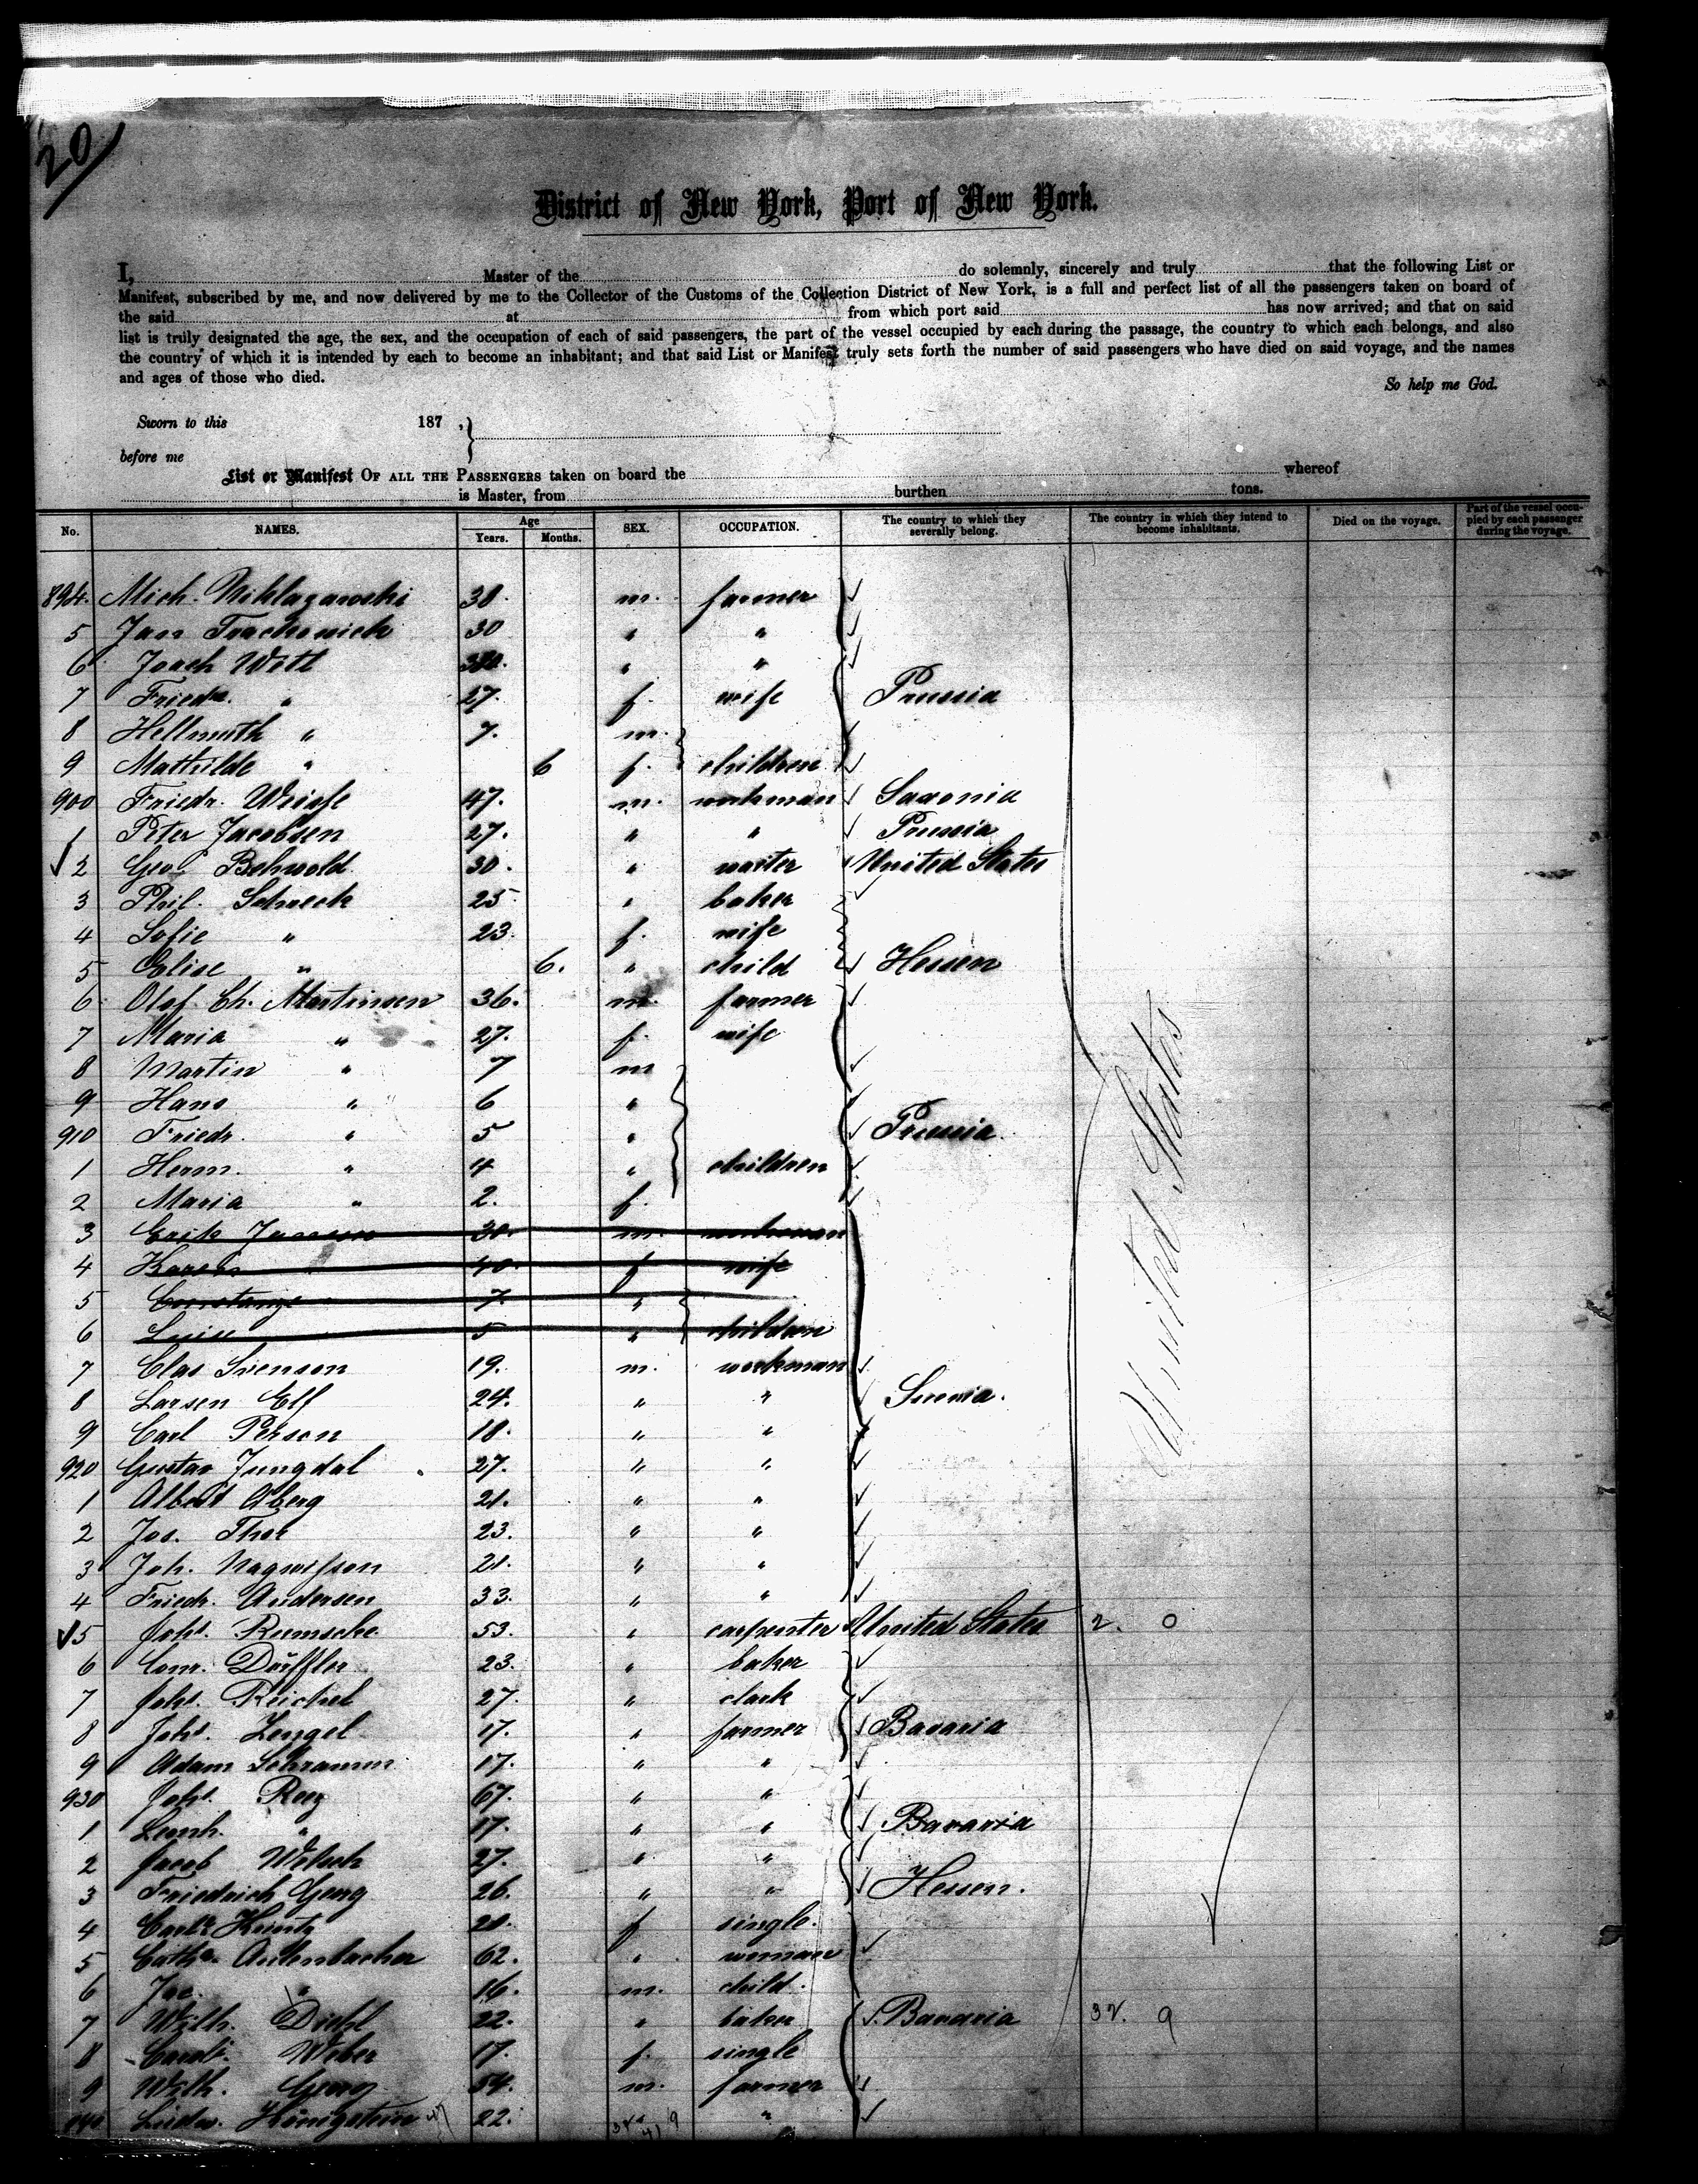 20
District of New York, Port of New York.
I, Master of the do solemnly, sincerely and truly that the following List or
Manifest, subscribed by me, and now delivered by me to the Collector of the Customs of the Collection District of New York, is a full and perfect list of all the passengers taken on board of
the said at from which port said has now arrived; and that on said
list is truly designated the age, the sex, and the occupation of each of said passengers, the part of the vessel occupied by each during the passage, the country to which each belongs, and also
the country of which it is intended by each to become an inhabitant; and that said List or Manifest truly sets forth the number of said passengers who have died on said voyage, and the names
and ages of those who died.
So help me God.
Sworn to this 187 ,
before me
List or Manifest OF ALL THE PASSENGERS taken on board the whereof
is Master, from burthen tons.
No. NAMES. Age Years. Months. SEX. OCCUPATION. The country to which they severally belong. The country in which they intend to become inhabitants. Died on the voyage. Part of the vessel occupied by each passenger during the voyage.
894. Mich. 30. m. farmer
5 30 " "
6 Witt " "
7 Friedr. " 27. f. wife Prussia
8 Hellmuth " 7. m.
9 Mathilde " 6 f. children
900 Friedr. Weisse 47. m. workman Saxonia
1 Peter Jacobsen 27. " " Prussia
2 Geo. 30. " waiter United States
3 Phil. Schreck 25 " baker
4 Sofie " 23. f. wife
5 Elise " 6. " child Hessen
6 Olof Ch. Martinsen 36. m. farmer
7 Maria " 27. f. wife
8 Martin " 7 m
9 Hans " 6 "
910 Friedr. " 5 " Prussia
1 Herm. " 4 " children
2 Maria " 2. f.
3 Erik 30. m. workman
4 Karen 40. f wife
5 Constanze 7. "
6 Luise 5 " children
7 Clas Svenson 19. m. workman
8 Larsen Elf 24. " " Suecia.
9 Carl Person 18. " "
920 Gustav Jungdal 27. " "
1 Albert Aberg 21. " "
2 Jos. Thor 23. " "
3 Joh. 21. " "
4 Friedr. Andersen 33. " "
5 Joh. Rumsche 53. " carpenter United States 2. 0
6 Conr. Döffler 23. " baker
7 Joh. Reichel 27. " clark
8 Joh. Zengel 17. " farmer Bavaria
9 Adam Schramm 17. " "
930 Joh. Reez 67. " "
1 Leonh. " 17. " " Bavaria
2 Jacob Welsch 27. " "
3 Friedrich Georg 26. " " Hessen.
4 Kuntz 20. f single.
5 Cath. Autenbacher 62. " woman
6 Jac. " 16. m. child.
7 Wilh. Diehl 22. " baker Bavaria 32. 9
8 Caroli. Weber 17. f. single
9 Wilh. Georg 54. m. farmer
940 Königstein 22. "
United States